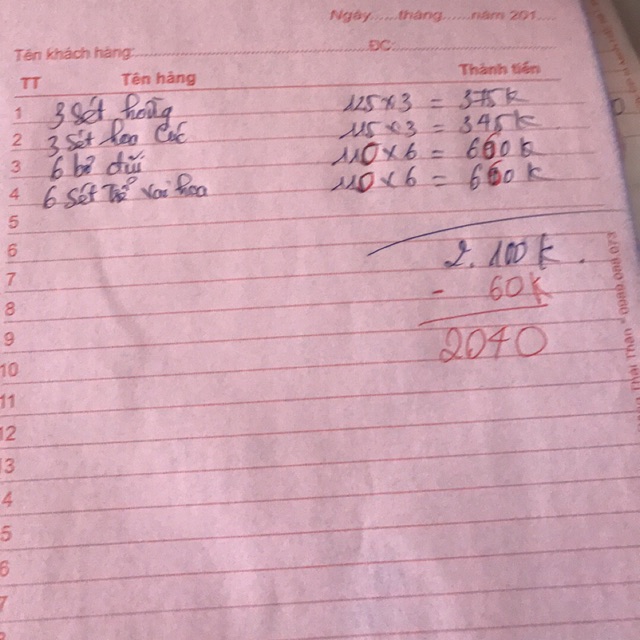 Ngày..... tháng......năm 201....
Tên khách hàng:.......................ĐC:.......................
TT Tên hàng Thành tiền
1 3 sét hồng 125 x 3 = 375 k
2 3 sét hoa cúc 115 x 3 = 345 k
3 6 bộ 110 x 6 = 660 k
4 6 sét hoa 110 x 6 = 660 k
5
6 2.100 k.
7 - 60k
8
9 2040
10
11
12
13
4
5
6
7
Thái Thân * 0989.088.073